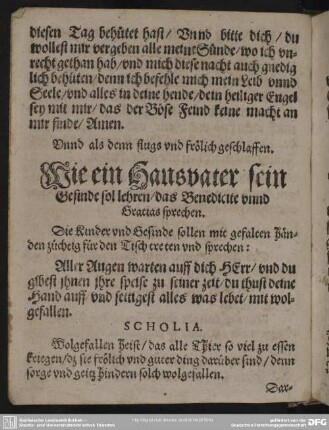 diesen Tag behütet hast / Vnnd bitte dich / du
wollest mir vergeben alle meine Sünde / wo ich vn-
recht gethan hab / vnd mich diese nacht auch gnedig
lich behüten / denn ich befehle mich mein Leib vnnd
Seele / vnd alles in deine hende / dein heiliger Engel
sey mit mir / das der Böse Feind keine macht an
mir finde / Amen.
Vnnd als denn flugs vnd frölich geschlaffen.
Wie ein Hausvater sein
Gesinde sol lehren / das Benedicite vnnd
Gratias sprechen.
Die Kinder vnd Gesinde sollen mit gefalten Hän-
den züchtig für den Tisch tretten vnd sprechen:
Aller Augen warten auff dich HErr / vnd du
gibest jhnen jhre speise zu seiner zeit / du thust deine
Hand auff vnd settigest alles was lebet / mit wol-
gefallen.
SCHOLIA.
Wolgefallen heist / das alle Thier so viel zu essen
kriegen / dz sie frölich vnd guter ding darüber sind / denn
sorge vnd geitz hindern solch wolgefallen.
Dar-